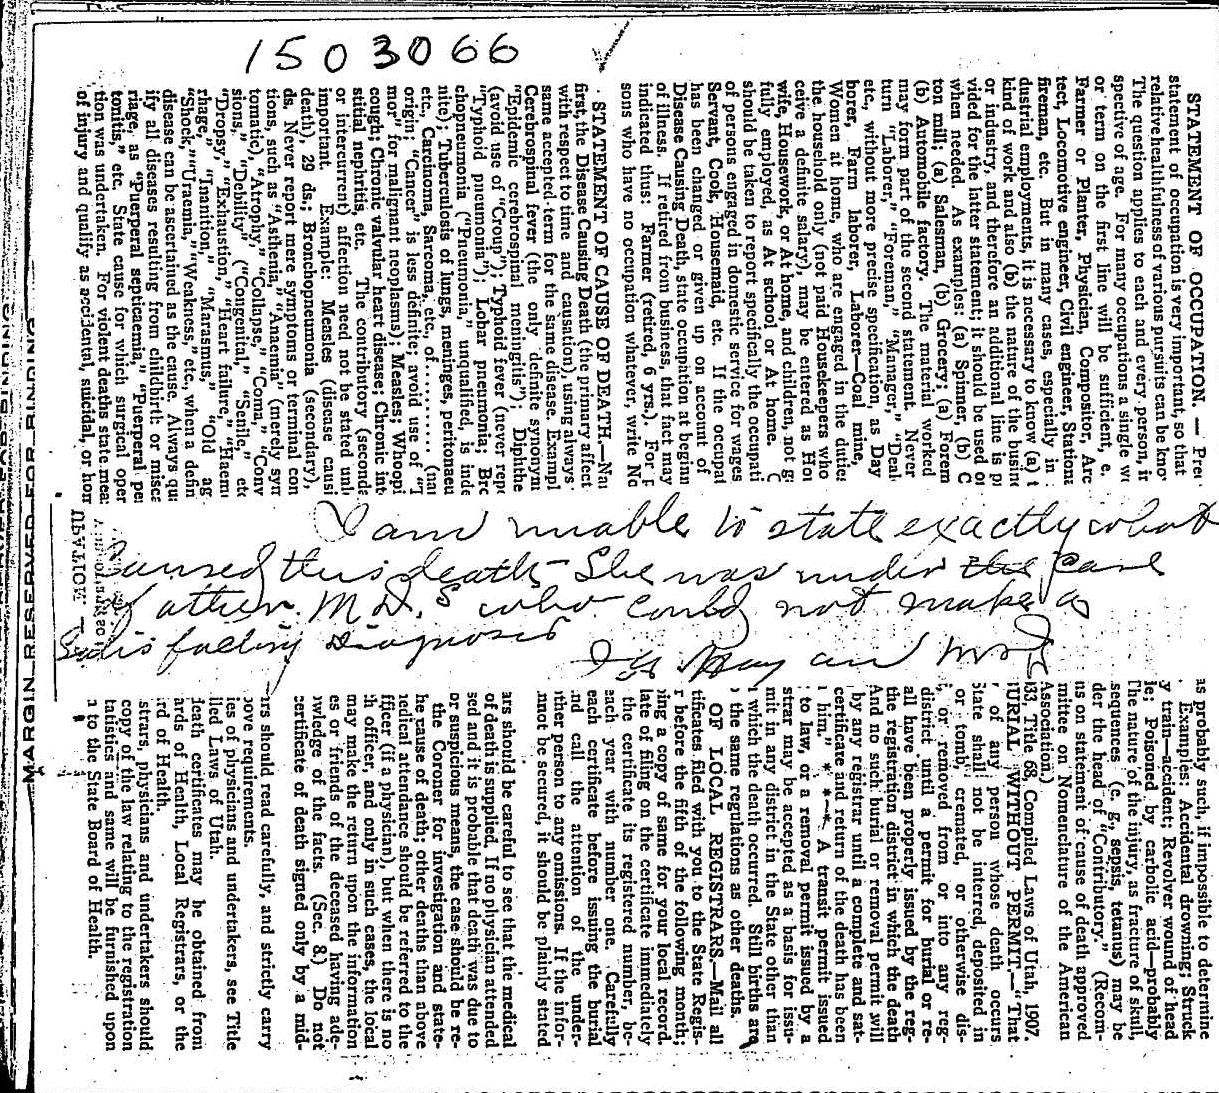 1503066 ✓
STATEMENT OF OCCUPATION. — Prec
statement of occupation is very important, so that
relative healthfulness of various pursuits can be kno
The question applies to each and every person, ir
spective of age. For many occupations a single w
or term on the first line will be sufficient, e.
Farmer or Planter, Physician, Compositor, Arc
tect, Locomotive engineer, Civil engineer, Stationa
fireman, etc. But in many cases, especially in
dustrial employments, it is necessary to know (a) t
kind of work and also (b) the nature of the busine
or industry, and therefore an additional line is p
vided for the latter statement; it should be used o
when needed. As examples: (a) Spinner, (b) C
ton mill; (a) Salesman, (b) Grocery; (a) Forem
(b) Automobile factory. The material worked
may form part of the second statement. Never
turn "Laborer," "Foreman," "Manager," "Deal
etc., without more precise specification, as Day
borer, Farm laborer, Laborer—Coal mine,
Women at home, who are engaged in the dutie
the household only (not paid Housekeepers who
ceive a definite salary), may be entered as Ho
wife, Housework, or At home, and children, not g
fully employed, as At school or At home. C
should be taken to report specifically the occupati
of persons engaged in domestic service for wages
Servant, Cook, Housemaid, etc. If the occupat
has been changed or given up on account of
Disease Causing Death, state occupation at beginn
of illness. If retired from business, that fact may
indicated thus: Farmer (retired, 6 yrs.). For p
sons who have no occupation whatever, write No
STATEMENT OF CAUSE OF DEATH.—Na
first, the Disease Causing Death (the primary affect
with respect to time and causation), using always
same accepted term for the same disease. Exampl
Cerebrospinal fever (the only definite synonym
"Epidemic cerebrospinal meningitis"); Diphthe
(avoid use of "Croup"); Typhoid fever (never repo
"Typhoid pneumonia"); Lobar pneumonia; Bro
chopneumonia ("Pneumonia," unqualified, is inde
nite); Tuberculosis of lungs, meninges, peritonaeu
etc., Carcinoma, Sarcoma, etc., of.......... (nar
origin: "Cancer" is less definite; avoid use of "T
mor" for malignant neoplasms); Measles; Whoopi
cough; Chronic valvular heart disease; Chronic int
stitial nephritis, etc. The contributory (seconda
or intercurrent) affection need not be stated unl
important. Example: Measles (disease causi
death), 29 ds.; Bronchopneumonia (secondary),
ds. Never report mere symptoms or terminal con
tions, such as "Asthenia," "Anaemia" (merely sym
tomatic), "Atrophy," "Collapse," "Coma," "Conv
sions," "Debility" ("Congenital," "Senile," etc
"Dropsy," "Exhaustion," "Heart failure," "Haem
rhage," "Inanition," "Marasmus," "Old ag
"Shock," "Uraemia," "Weakness," etc., when a defin
disease can be ascertained as the cause. Always qua
ify all diseases resulting from childbirth or misca
riage, as "Puerperal septicaemia," "Puerperal pe
tonitis," etc. State cause for which surgical oper
tion was undertaken. For violent deaths state mea
of injury and qualify as accidental, suicidal, or hom
I am unable to state exactly what
Caused this death - She was under the care
of other M.D.s who could not make a
Satisfactory Diagnosis
as probably such, if impossible to determine
Examples: Accidental drowning; Struck
y train—accident; Revolver wound of head
le; Poisoned by carbolic acid—probably
The nature of the injury, as fracture of skull,
sequences (e. g., sepsis, tetanus) may be
der the head of "Contributory." (Recom-
ns on statement of cause of death approved
mittee on Nomenclature of the American
Association.)
33, Title 68, Compiled Laws of Utah, 1907.
URIAL WITHOUT PERMIT.—"That
of any person whose death occurs
State shall not be interred, deposited in
or tomb, cremated, or otherwise dis-
, or removed from or into any reg-
district until a permit for burial or re-
all have been properly issued by the reg-
the registration district in which the death
And no such burial or removal permit will
by any registrar until a complete and sat-
certificate and return of the death has been
him. * * *—* A transit permit issued
to law, or a removal permit issued by a
strar may be accepted as a basis for issu-
mit in any district in the State other than
which the death occurred. Still births are
the same regulations as other deaths.
OF LOCAL REGISTRARS.—Mail all
tificates filed with you to the State Regis-
r before the fifth of the following month;
ing a copy of same for your local record.
late of filing on the certificate immediately
the certificate its registered number, be-
each year with number one. Carefully
each certificate before issuing the burial
nd call the attention of the under-
ther person to any omissions. If the infor-
nnot be secured, it should be plainly stated
ars should be careful to see that the medical
of death is supplied. If no physician attended
sed and it is probable that death was due to
or suspicious means, the case should be re-
the Coroner for investigation and state-
he cause of death; other deaths than above
nedical attendance should be referred to the
fficer (if a physician), but when there is no
th officer, and only in such cases, the local
may make the return upon the information
es or friends of the deceased having ade-
owledge of the facts. (Sec. 8.) Do not
certificate of death signed only by a mid-
ars should read carefully, and strictly carry
bove requirements.
ies of physicians and undertakers, see Title
lled Laws of Utah.
death certificates may be obtained from
ards of Health, Local Registrars, or the
rd of Health.
strars, physicians and undertakers should
copy of the law relating to the registration
tatistics and same will be furnished upon
n to the State Board of Health.
MARGIN RESERVED FOR BINDING